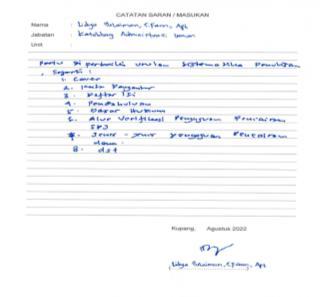 CATATAN SARAN / MASUKAN
Nama :
Jabatan : Administrasi Umum
Unit :
Perlu di perbaiki urutan sistematika Penulisan
, Seperti :
1. Cover
2. Kata Pengantar
3. Daftar Isi
4. Pendahuluan
5. Dasar Hukum
6. Alur Verifikasi Pengajuan Pencairan
SPJ
7. Jenis - Jenis Pengajuan Pencairan
dana
8. dst
Kupang, Agustus 2022